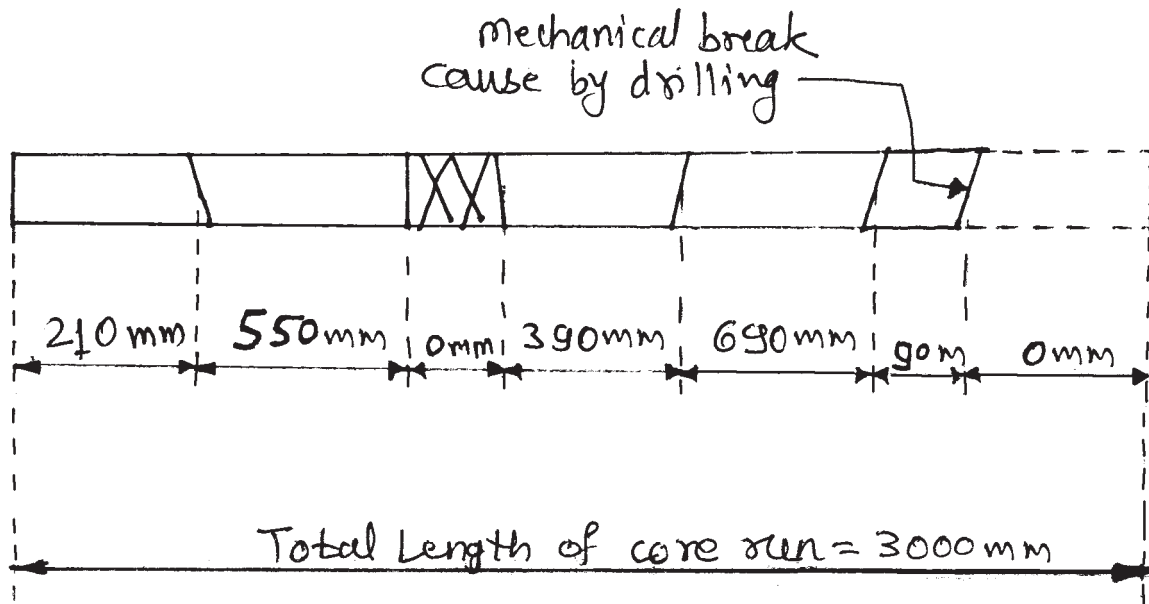 mechanical break
cause by drilling
210mm 550mm 0mm 390mm 690mm 90m 0mm
Total Length of core run = 3000mm